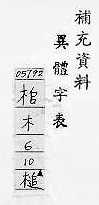 補充資料
異體字表
05792
棺
木
6
10
槌